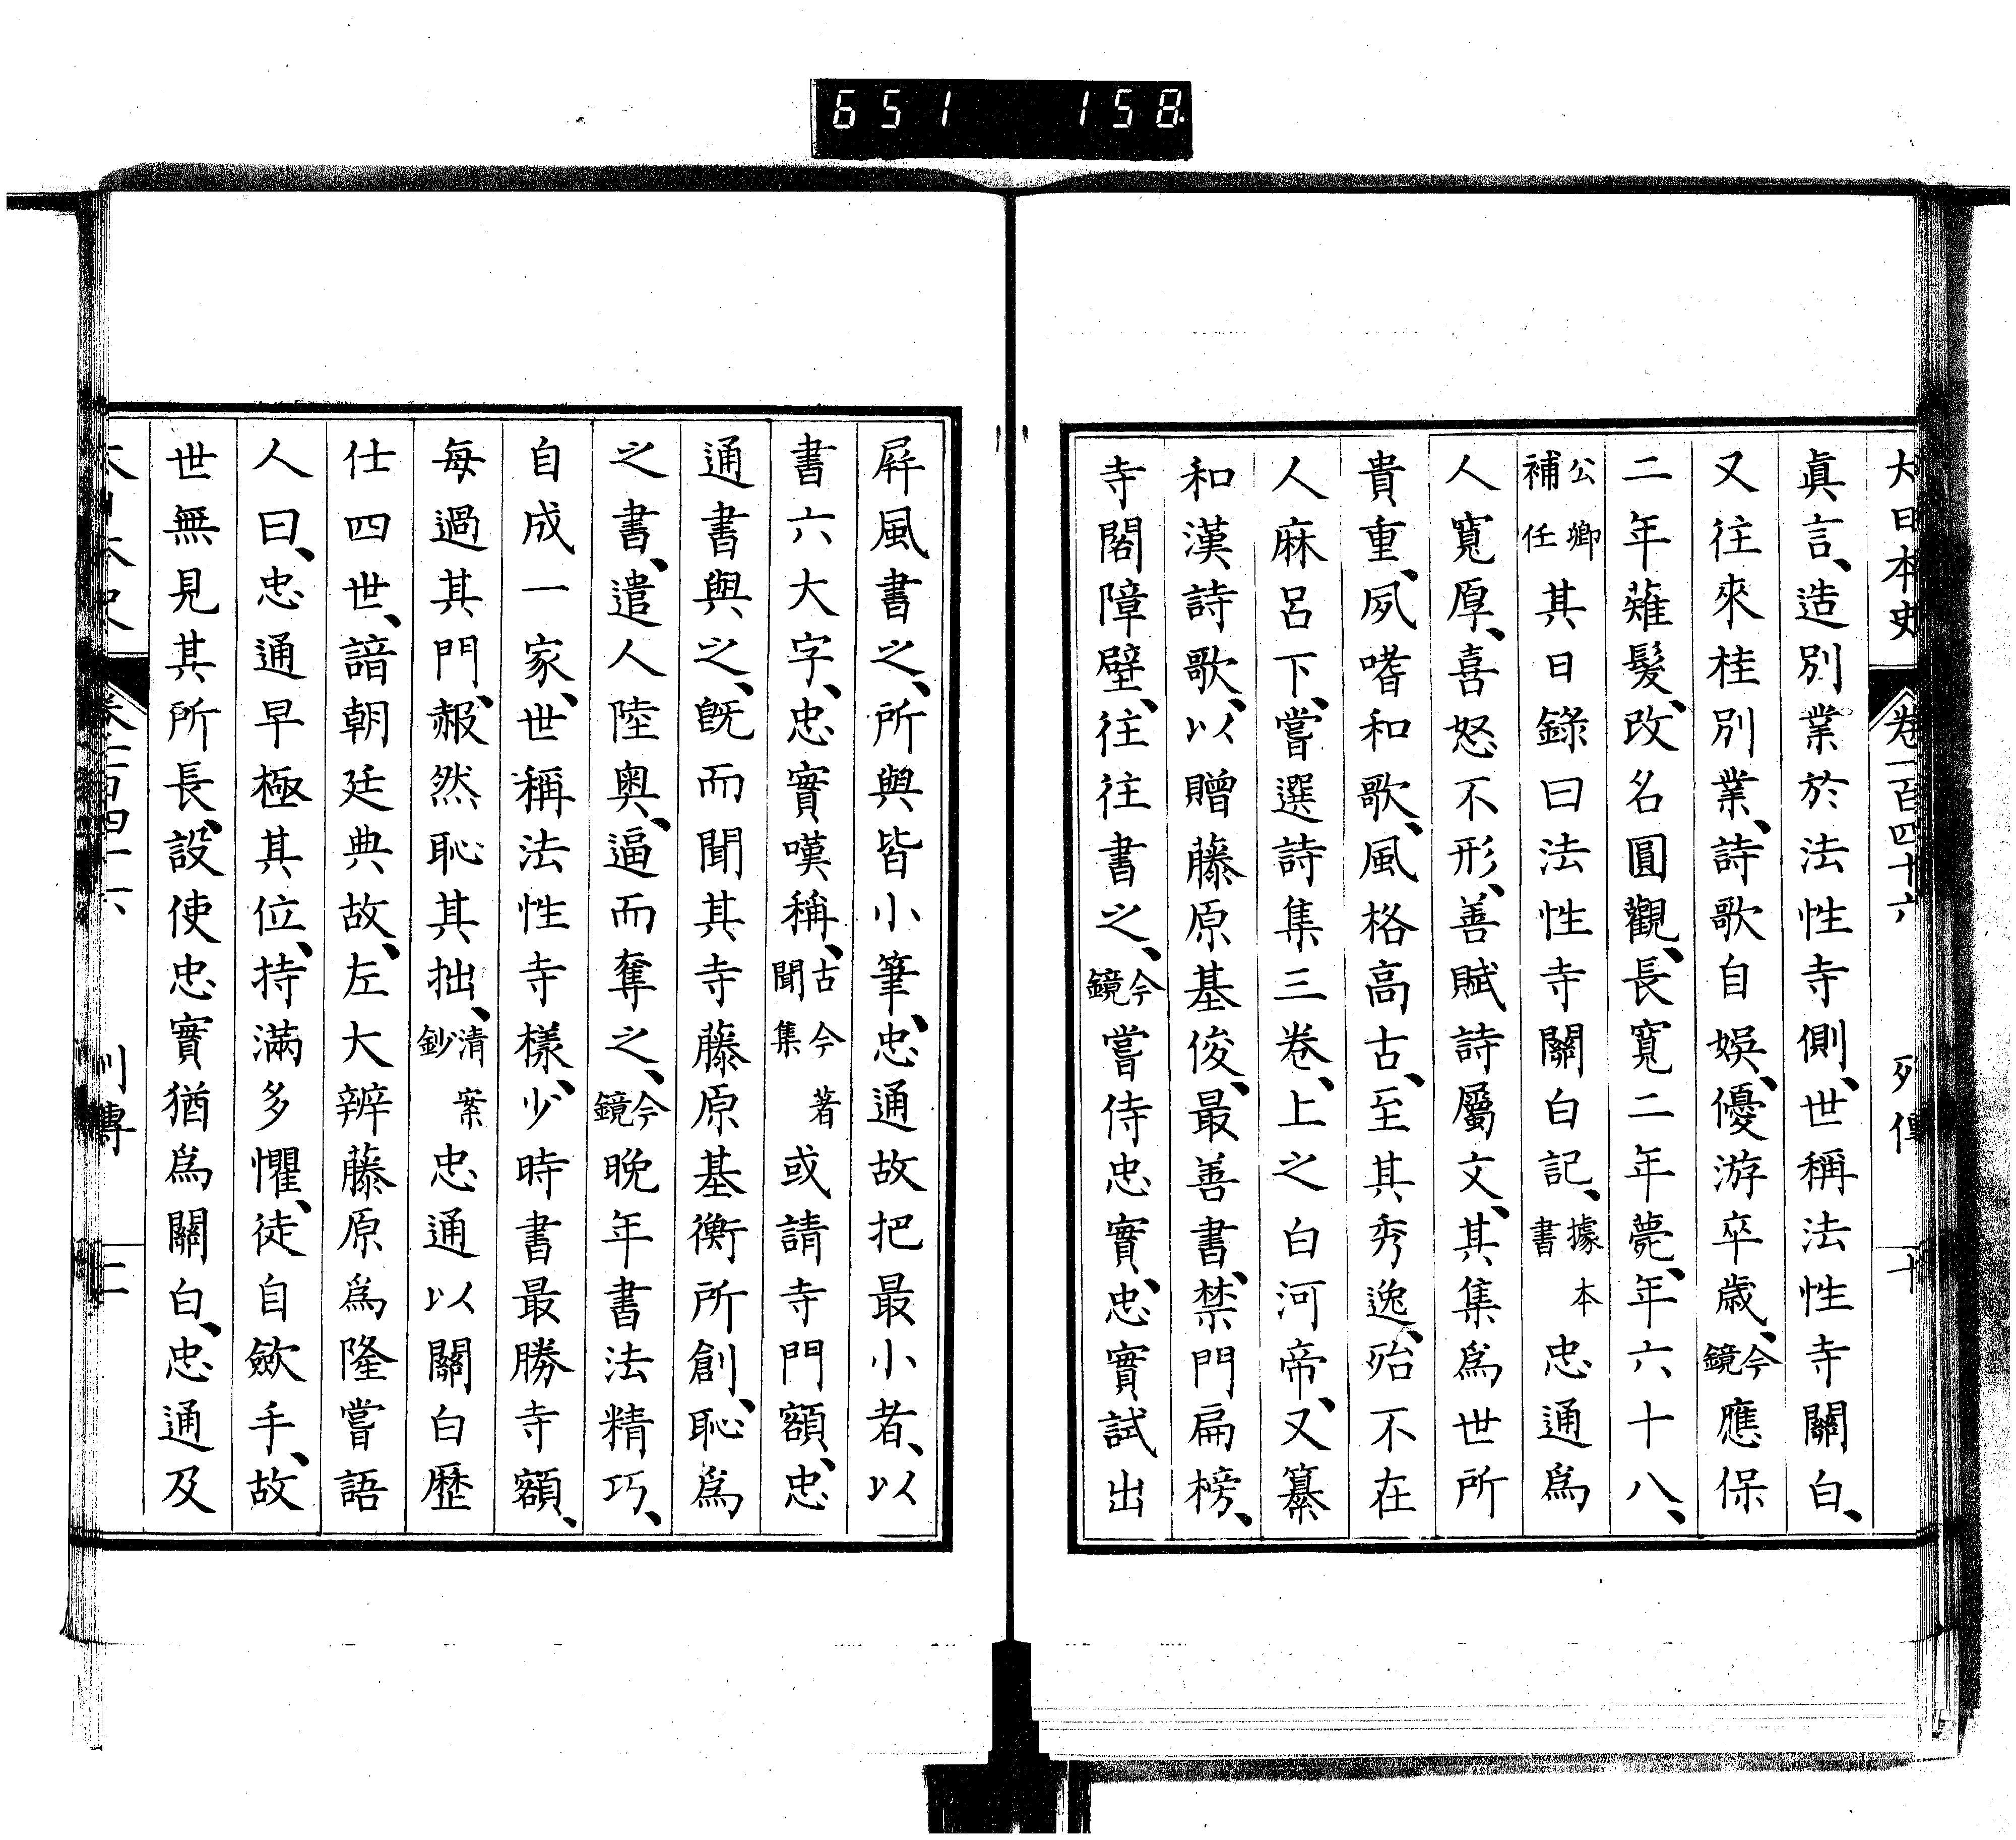 651 158
大日本史 卷一百四十六 列傳 十
眞言、造別業於法性寺側、世稱法性寺關白、
又往來桂別業、詩歌自娛、優游卒歲、今鏡應保
二年薙髮、改名圓觀、長寬二年薨、年六十八、
公卿補任其日錄曰法性寺關白記、據本書忠通爲
人寬厚、喜怒不形、善賦詩屬文、其集爲世所
貴重、夙嗜和歌、風格高古、至其秀逸、殆不在
人麻呂下、嘗選詩集三卷、上之白河帝、又纂
和漢詩歌、以贈藤原基俊、最善書、禁門扁榜、
寺閣障壁、往往書之、今鏡嘗侍忠實、忠實試出
屛風書之、所與皆小筆、忠通故把最小者、以
書六大字、忠實嘆稱、古今著聞集或請寺門額、忠
通書與之、旣而聞其寺藤原基衡所創、恥爲
之書、遣人陸奧、逼而奪之、今鏡晚年書法精巧、
自成一家、世稱法性寺樣、少時書最勝寺額、
每過其門、赧然恥其拙、淸案鈔忠通以關白歷
仕四世、諳朝廷典故、左大辨藤原爲隆嘗語
人曰、忠通早極其位、持滿多懼、徒自斂手、故
世無見其所長、設使忠實猶爲關白、忠通及